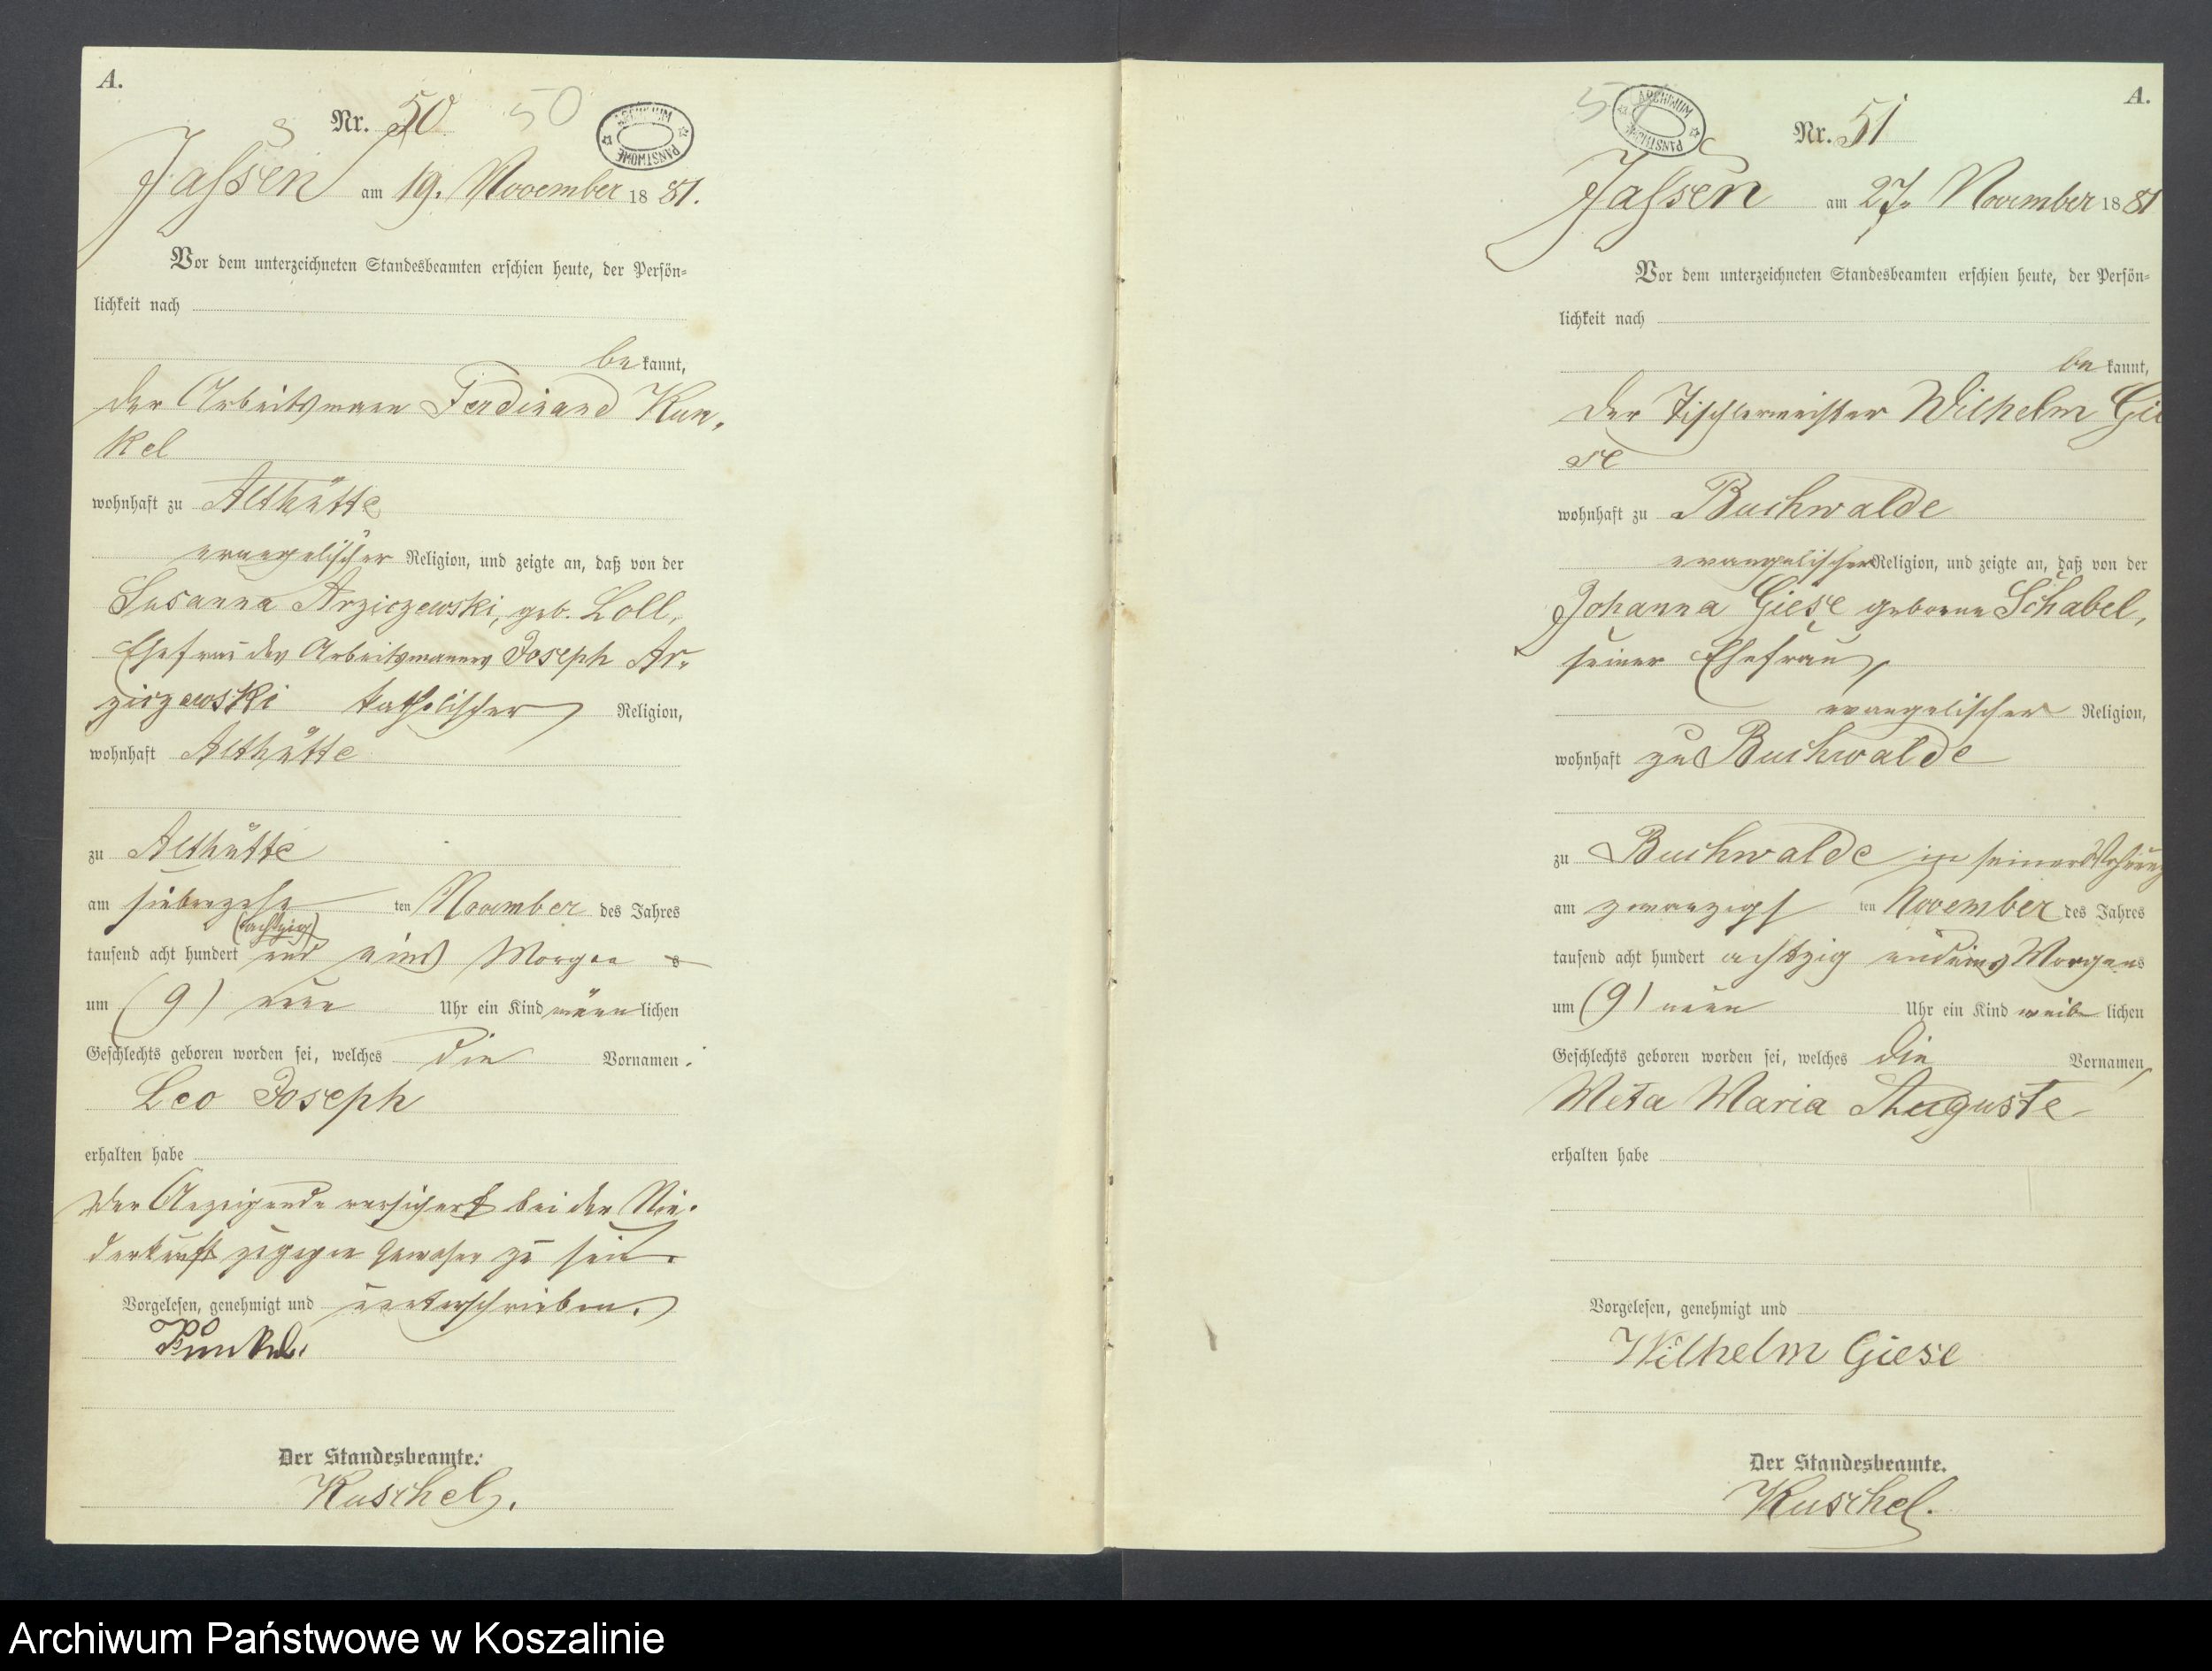 A.
Nr. 50 50
ARCHIWUM PAŃSTWOWE
Jassen am 19. November 1881.
Vor dem unterzeichneten Standesbeamten erschien heute, der Persön=
lichkeit nach
be kannt,
der Arbeitsmann Ferdinand Kun,
kel
wohnhaft zu Althütte
evangelischer Religion, und zeigte an, daß von der
Susanna Arziczewski, geb. Loll,
Ehefrau des Arbeitsmanns Joseph Ar,
ziczewski katholischer Religion,
wohnhaft Althütte
zu Althütte
am siebenzehn ten November des Jahres
(achtzig)
tausend acht hundert und eins Morgens
um (9) neun Uhr ein Kind männ lichen
Geschlechts geboren worden sei, welches die Vornamen
Leo Joseph
erhalten habe
Der Anzeigende versichert bei der Nie,
derkunft zugegen gewesen zu sein.
Vorgelesen, genehmigt und unterschrieben.
Der Standesbeamte:
Kuschel.
A.
Nr. 51
ARCHIWUM PAŃSTWOWE
Jassen am 27. November 1881
Vor dem unterzeichneten Standesbeamten erschien heute, der Persön=
lichkeit nach
be kannt,
der Tischlermeister Wilhelm Gie
se
wohnhaft zu Buchwalde
evangelischer Religion, und zeigte an, daß von der
Johanna Giese geborene Schabel,
seiner Ehefrau,
evangelischer Religion,
wohnhaft zu Buchwalde
zu Buchwalde in seiner Wohnung
am zwanzigst ten November des Jahres
tausend acht hundert achtzig und eins Morgens
um (9) neun Uhr ein Kind weib lichen
Geschlechts geboren worden sei, welches die Vornamen
Meta Maria Auguste
erhalten habe
Vorgelesen, genehmigt und
Wilhelm Giese
Der Standesbeamte.
Kuschel.
Archiwum Państwowe w Koszalinie